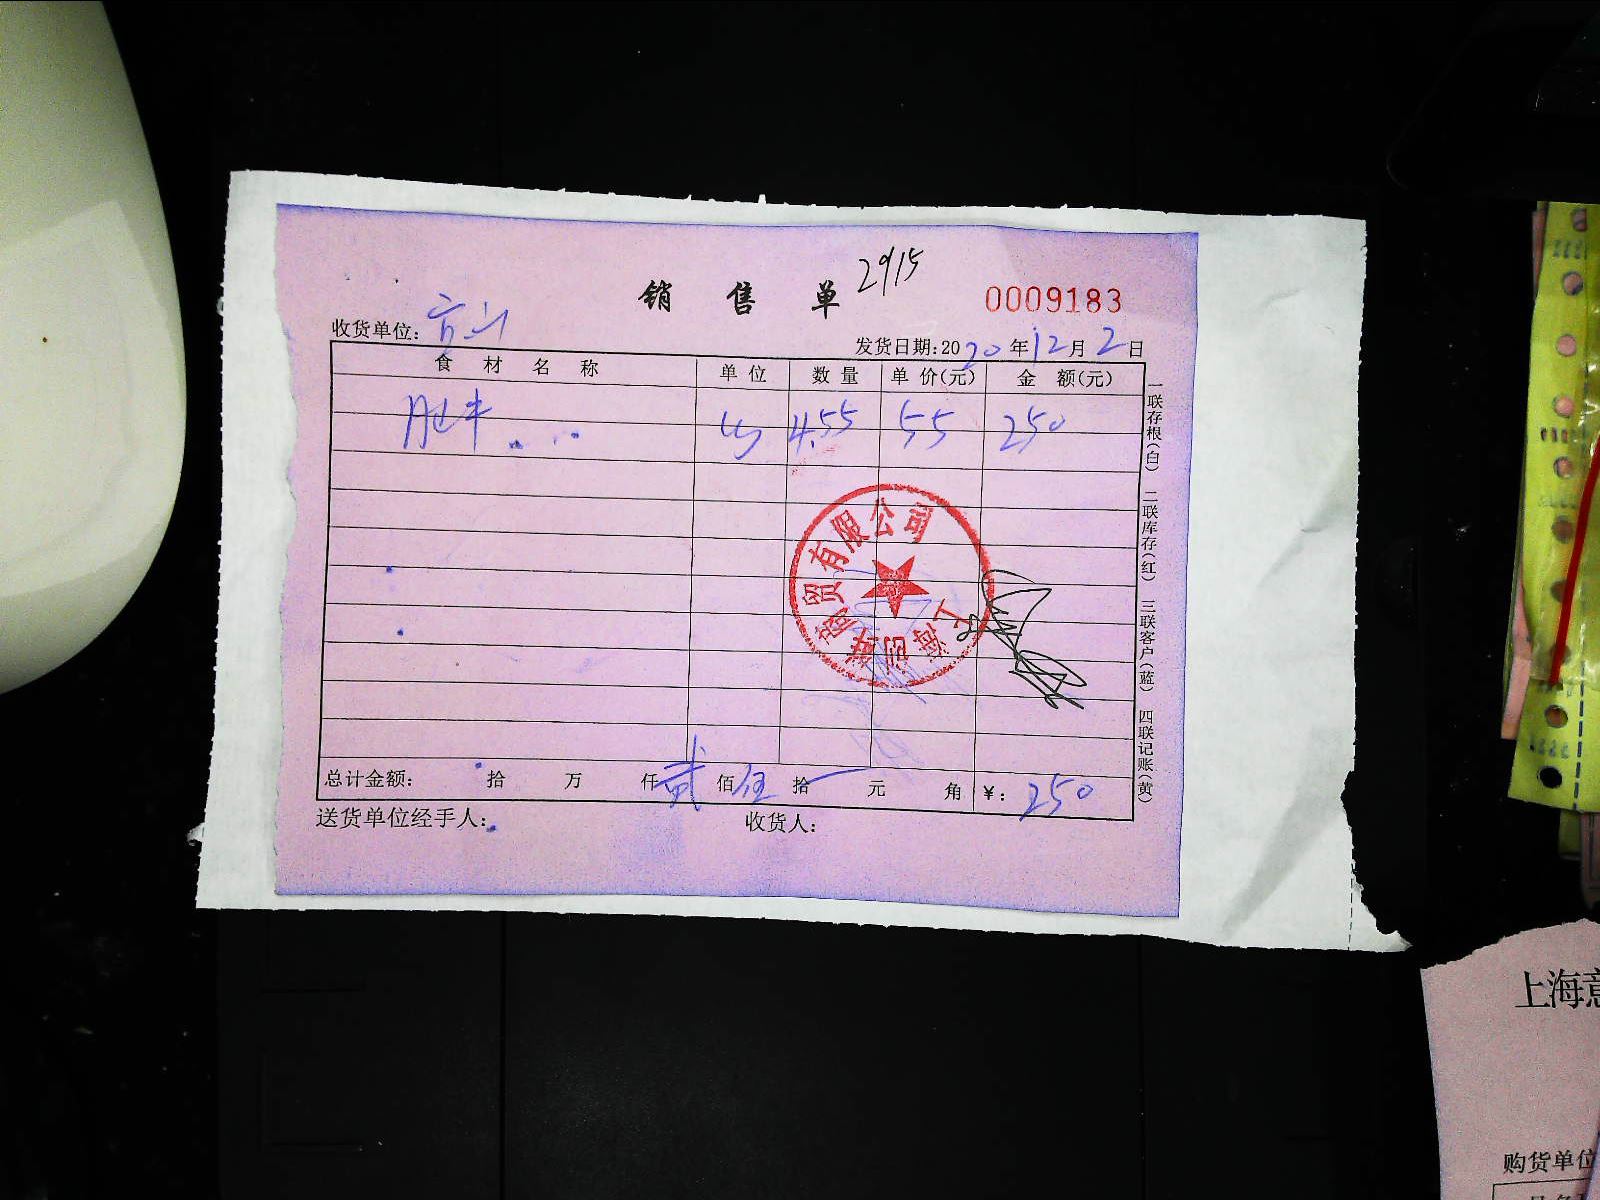 销售单 2915
0009183
收货单位:
发货日期:2020年12月2日
食材名称 单位 数量 单价(元) 金额(元)
肥牛 4.55 55 250
总计金额: 拾 万 仟 贰 佰 伍 拾 元 角 ¥: 250
送货单位经手人: 收货人:
一联存根(白) 二联库存(红) 三联客户(蓝) 四联记账(黄)
商贸有限公司
上海
上海意
购货单位